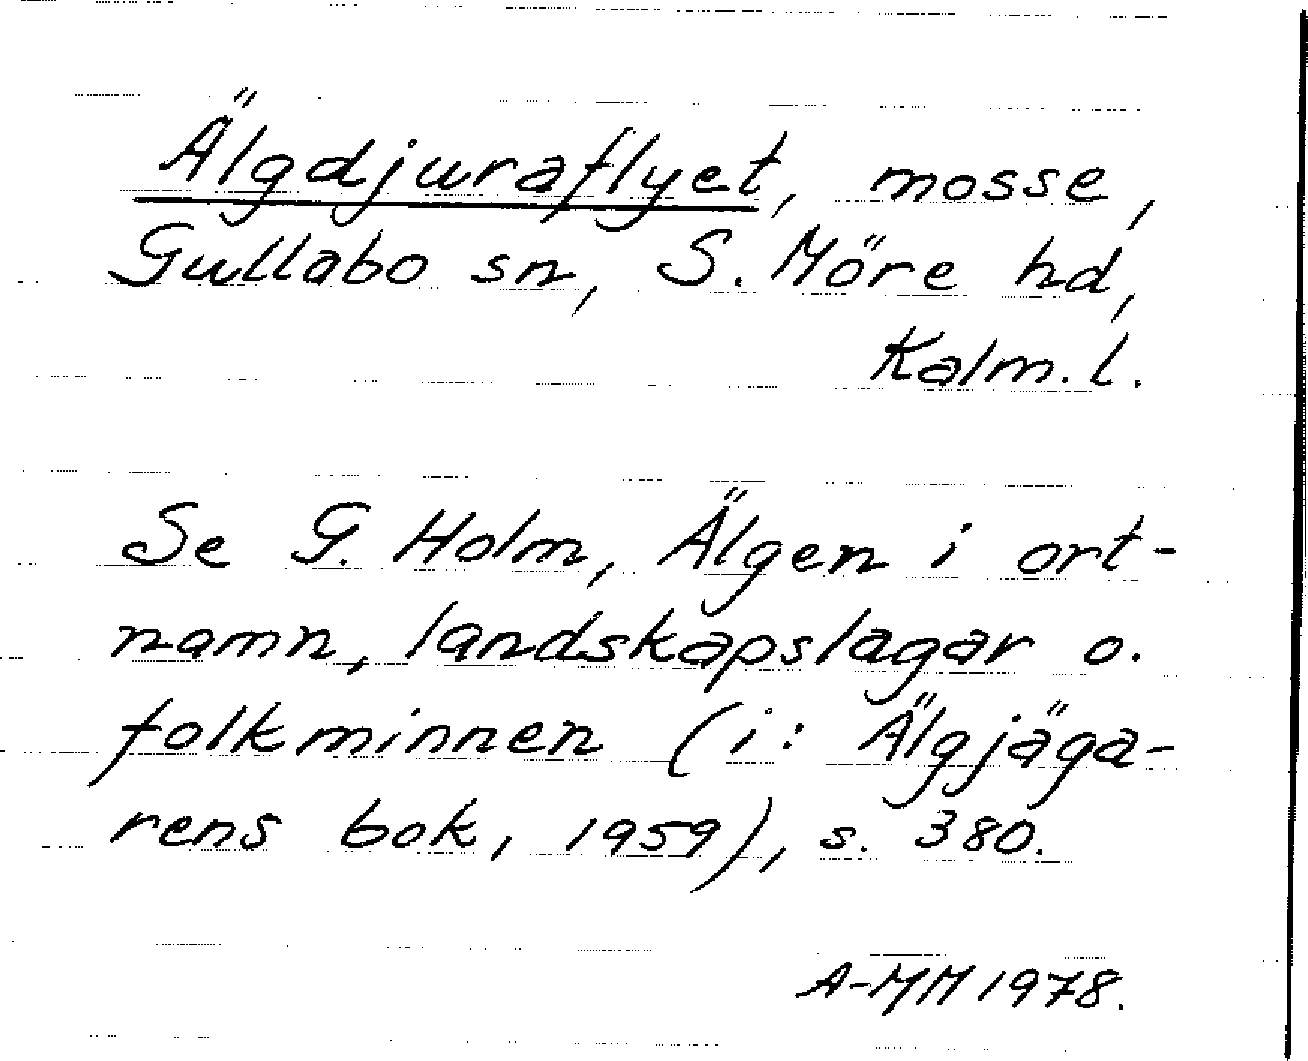 Älgdjuraflyet, mosse,
Gullabo sn, S. Möre hd,
Kalm. l.
Se G. Holm, Älgen i ort-
namn, landskapslagar o.
folkminnen (i: Älgjäga-
rens bok, 1959), s. 380.
A-MM 1978.